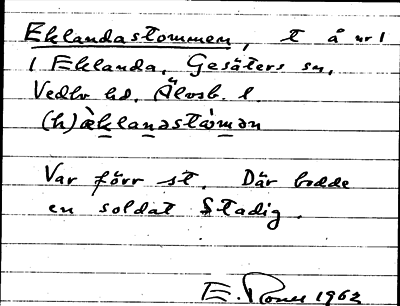 Eklandastommen, t å nr 1
i Eklanda, Gesäters sn,
Vedbo hd, Älvsb. l.
(h)ὰklanəstȧ̀mən
Var förr st. Där bodde
en soldat Stadig.
E. 1962